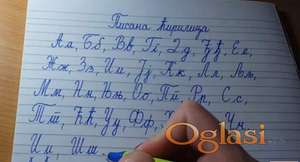 Писана ћирилица
Аа, Бб, Вв, Гг, Дд, Ђђ, Ее,
Жж, Зз, Ии, Јј, Кк, Лл, Љљ,
Мм, Нн, Њњ, Оо, Пп, Рр, Сс,
Тт, Ћћ, Уу, Фф, Чч,
Џџ, Шш
Oglasi